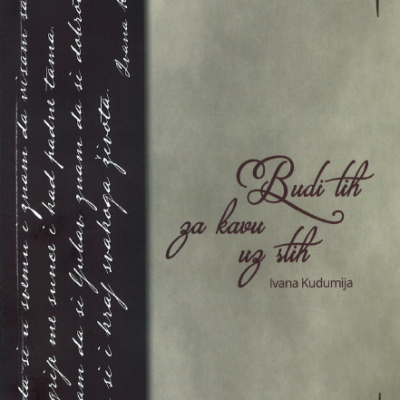 da si u svemu i znam da nisam sa
grije me sunce i kad padne tama.
am da si ljubav, znam da si dobrot
si i kraj svakoga života.
Ivana K
Budi tih
za kavu
uz stih
Ivana Kudumija